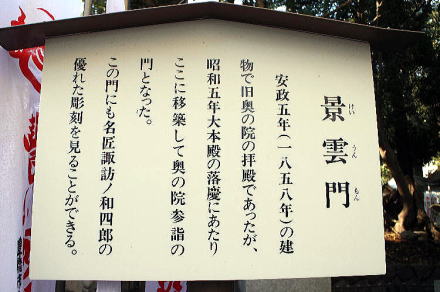 景雲門
けいうんもん
安政五年(一八五八年)の建
物で旧奥の院の拝殿であったが、
昭和五年大本殿の落慶にあたり
ここに移築して奥の院参詣の
門となった。
この門にも名匠諏訪ノ和四郎の
優れた彫刻を見ることができる。